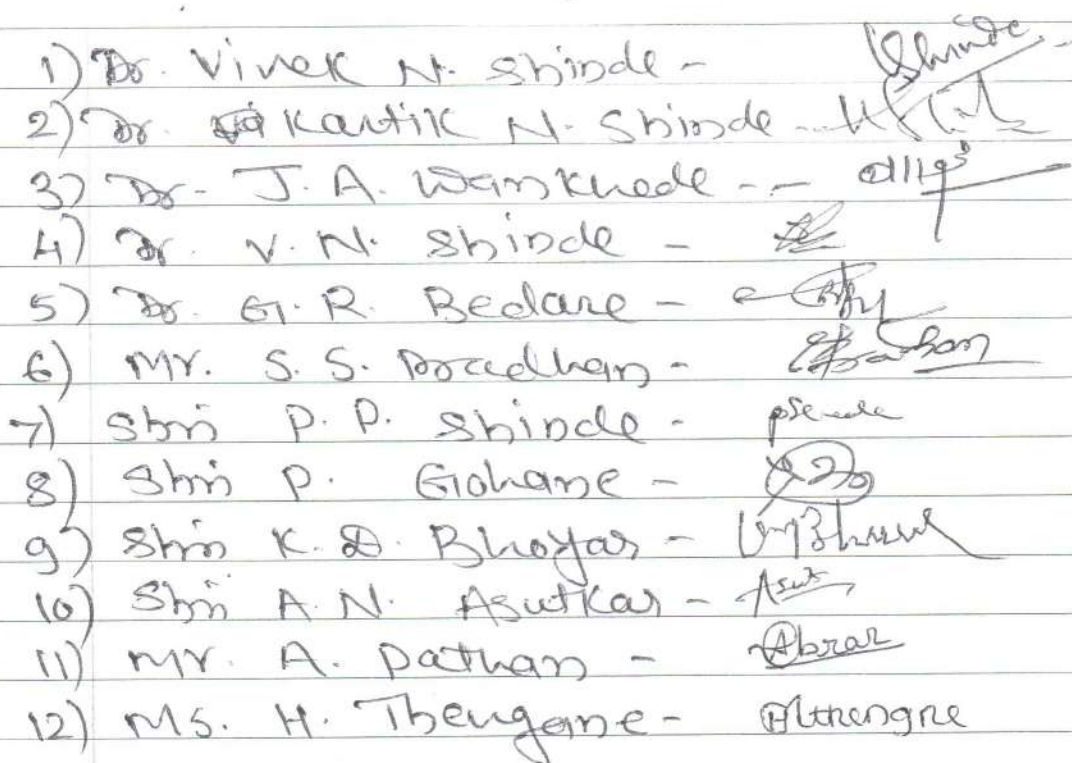 1) Dr. Vivek N. Shinde - Shinde
2) Dr. Kartik N. Shinde -
3) Dr. J. A. Wankhede --
4) Dr. V. N. Shinde -
5) Dr. G. R. Bedare -
6) Mr. S. S. Pradhan -
7) Shri P. P. Shinde -
8) Shri P. Gohane -
9) Shri K. D. Bhoyar -
10) Shri A. N. Asutkar - Asut
11) Mr. A. Pathan - Abrar
12) Ms. H. Thengane - HThengne